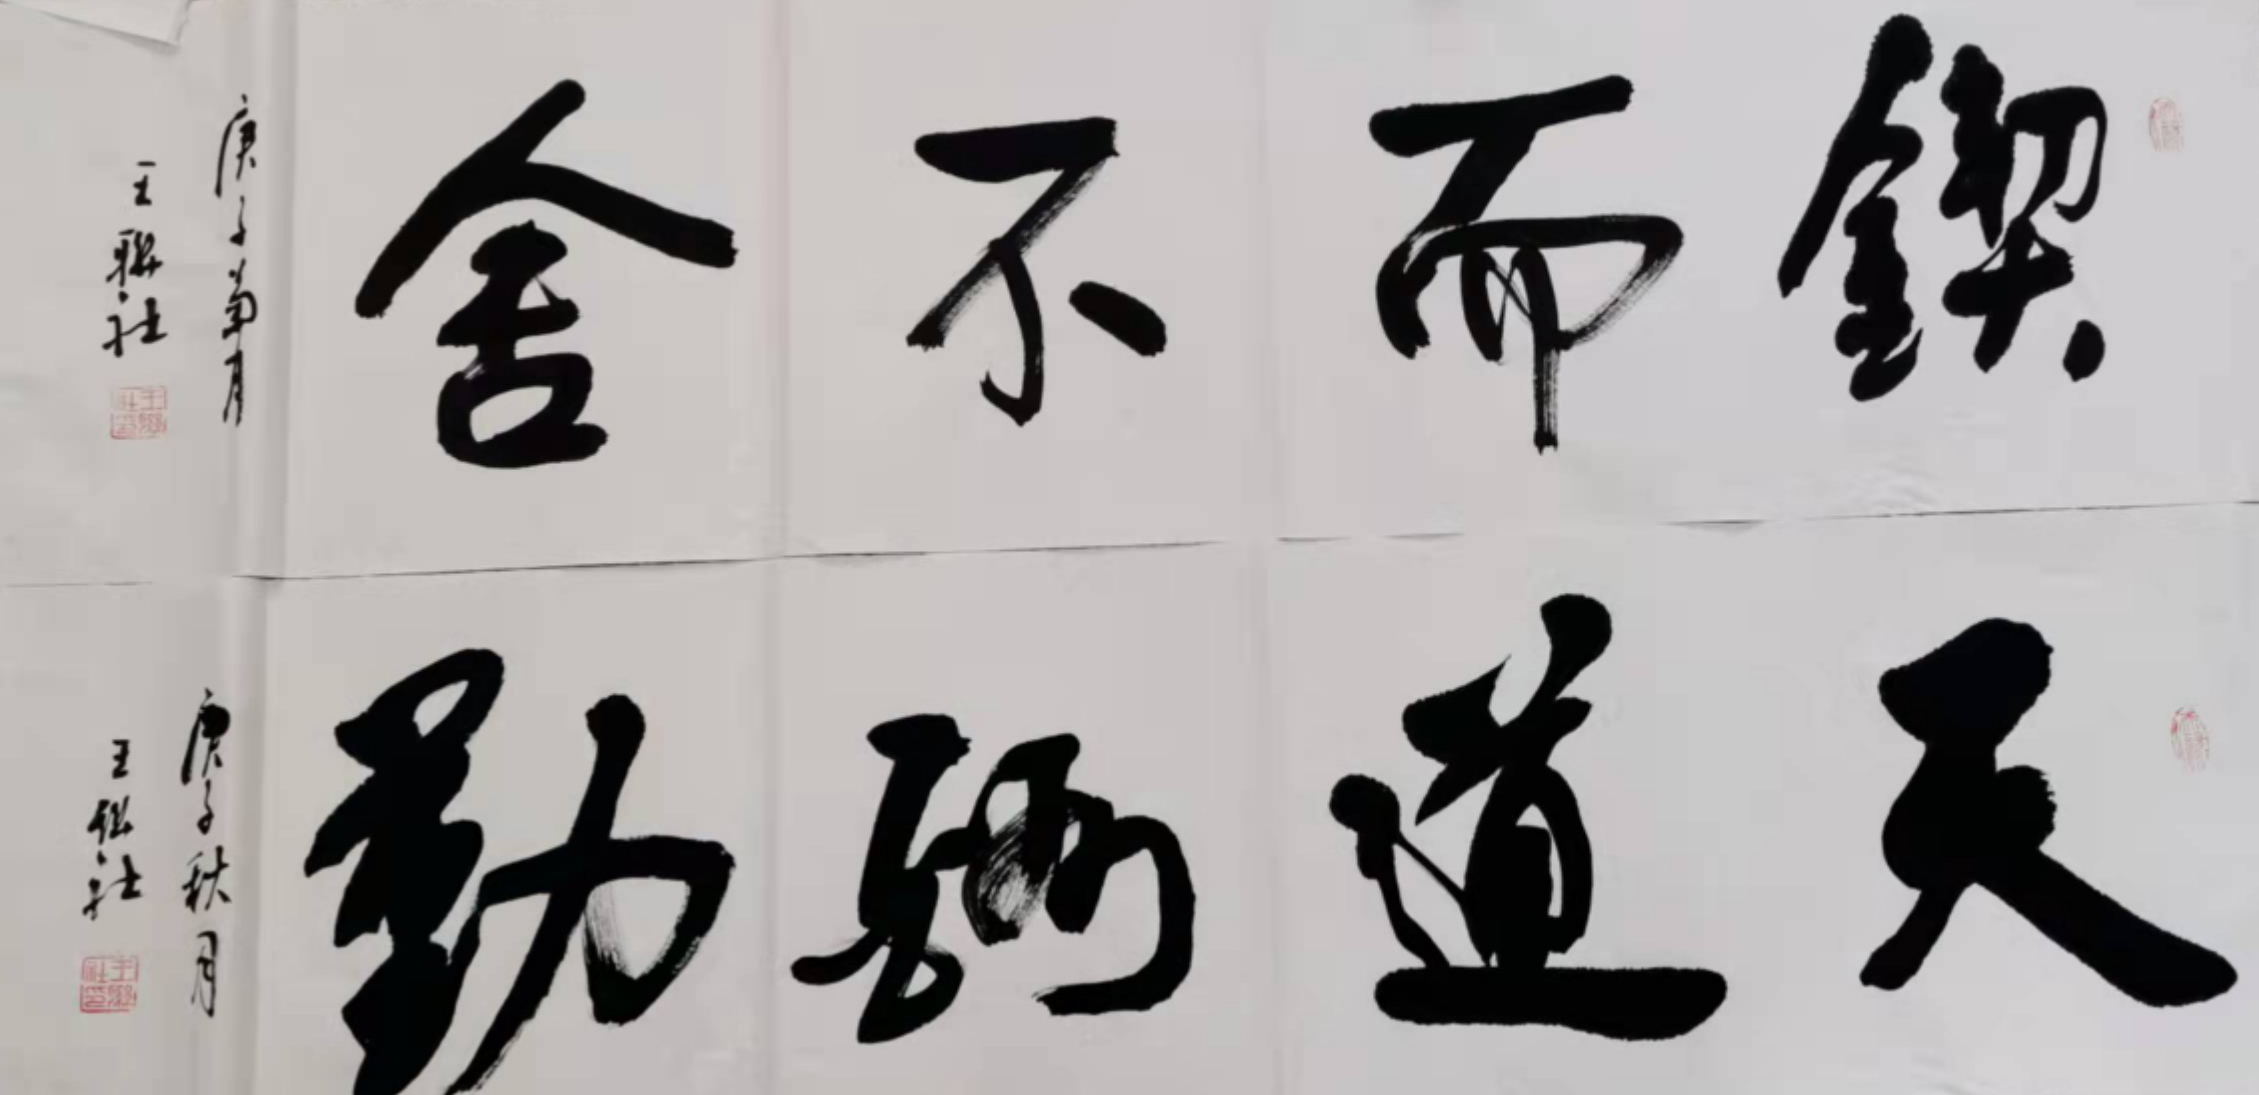 锲而不舍
庚子菊月
王联社
天道酬勤
庚子秋月
王联社